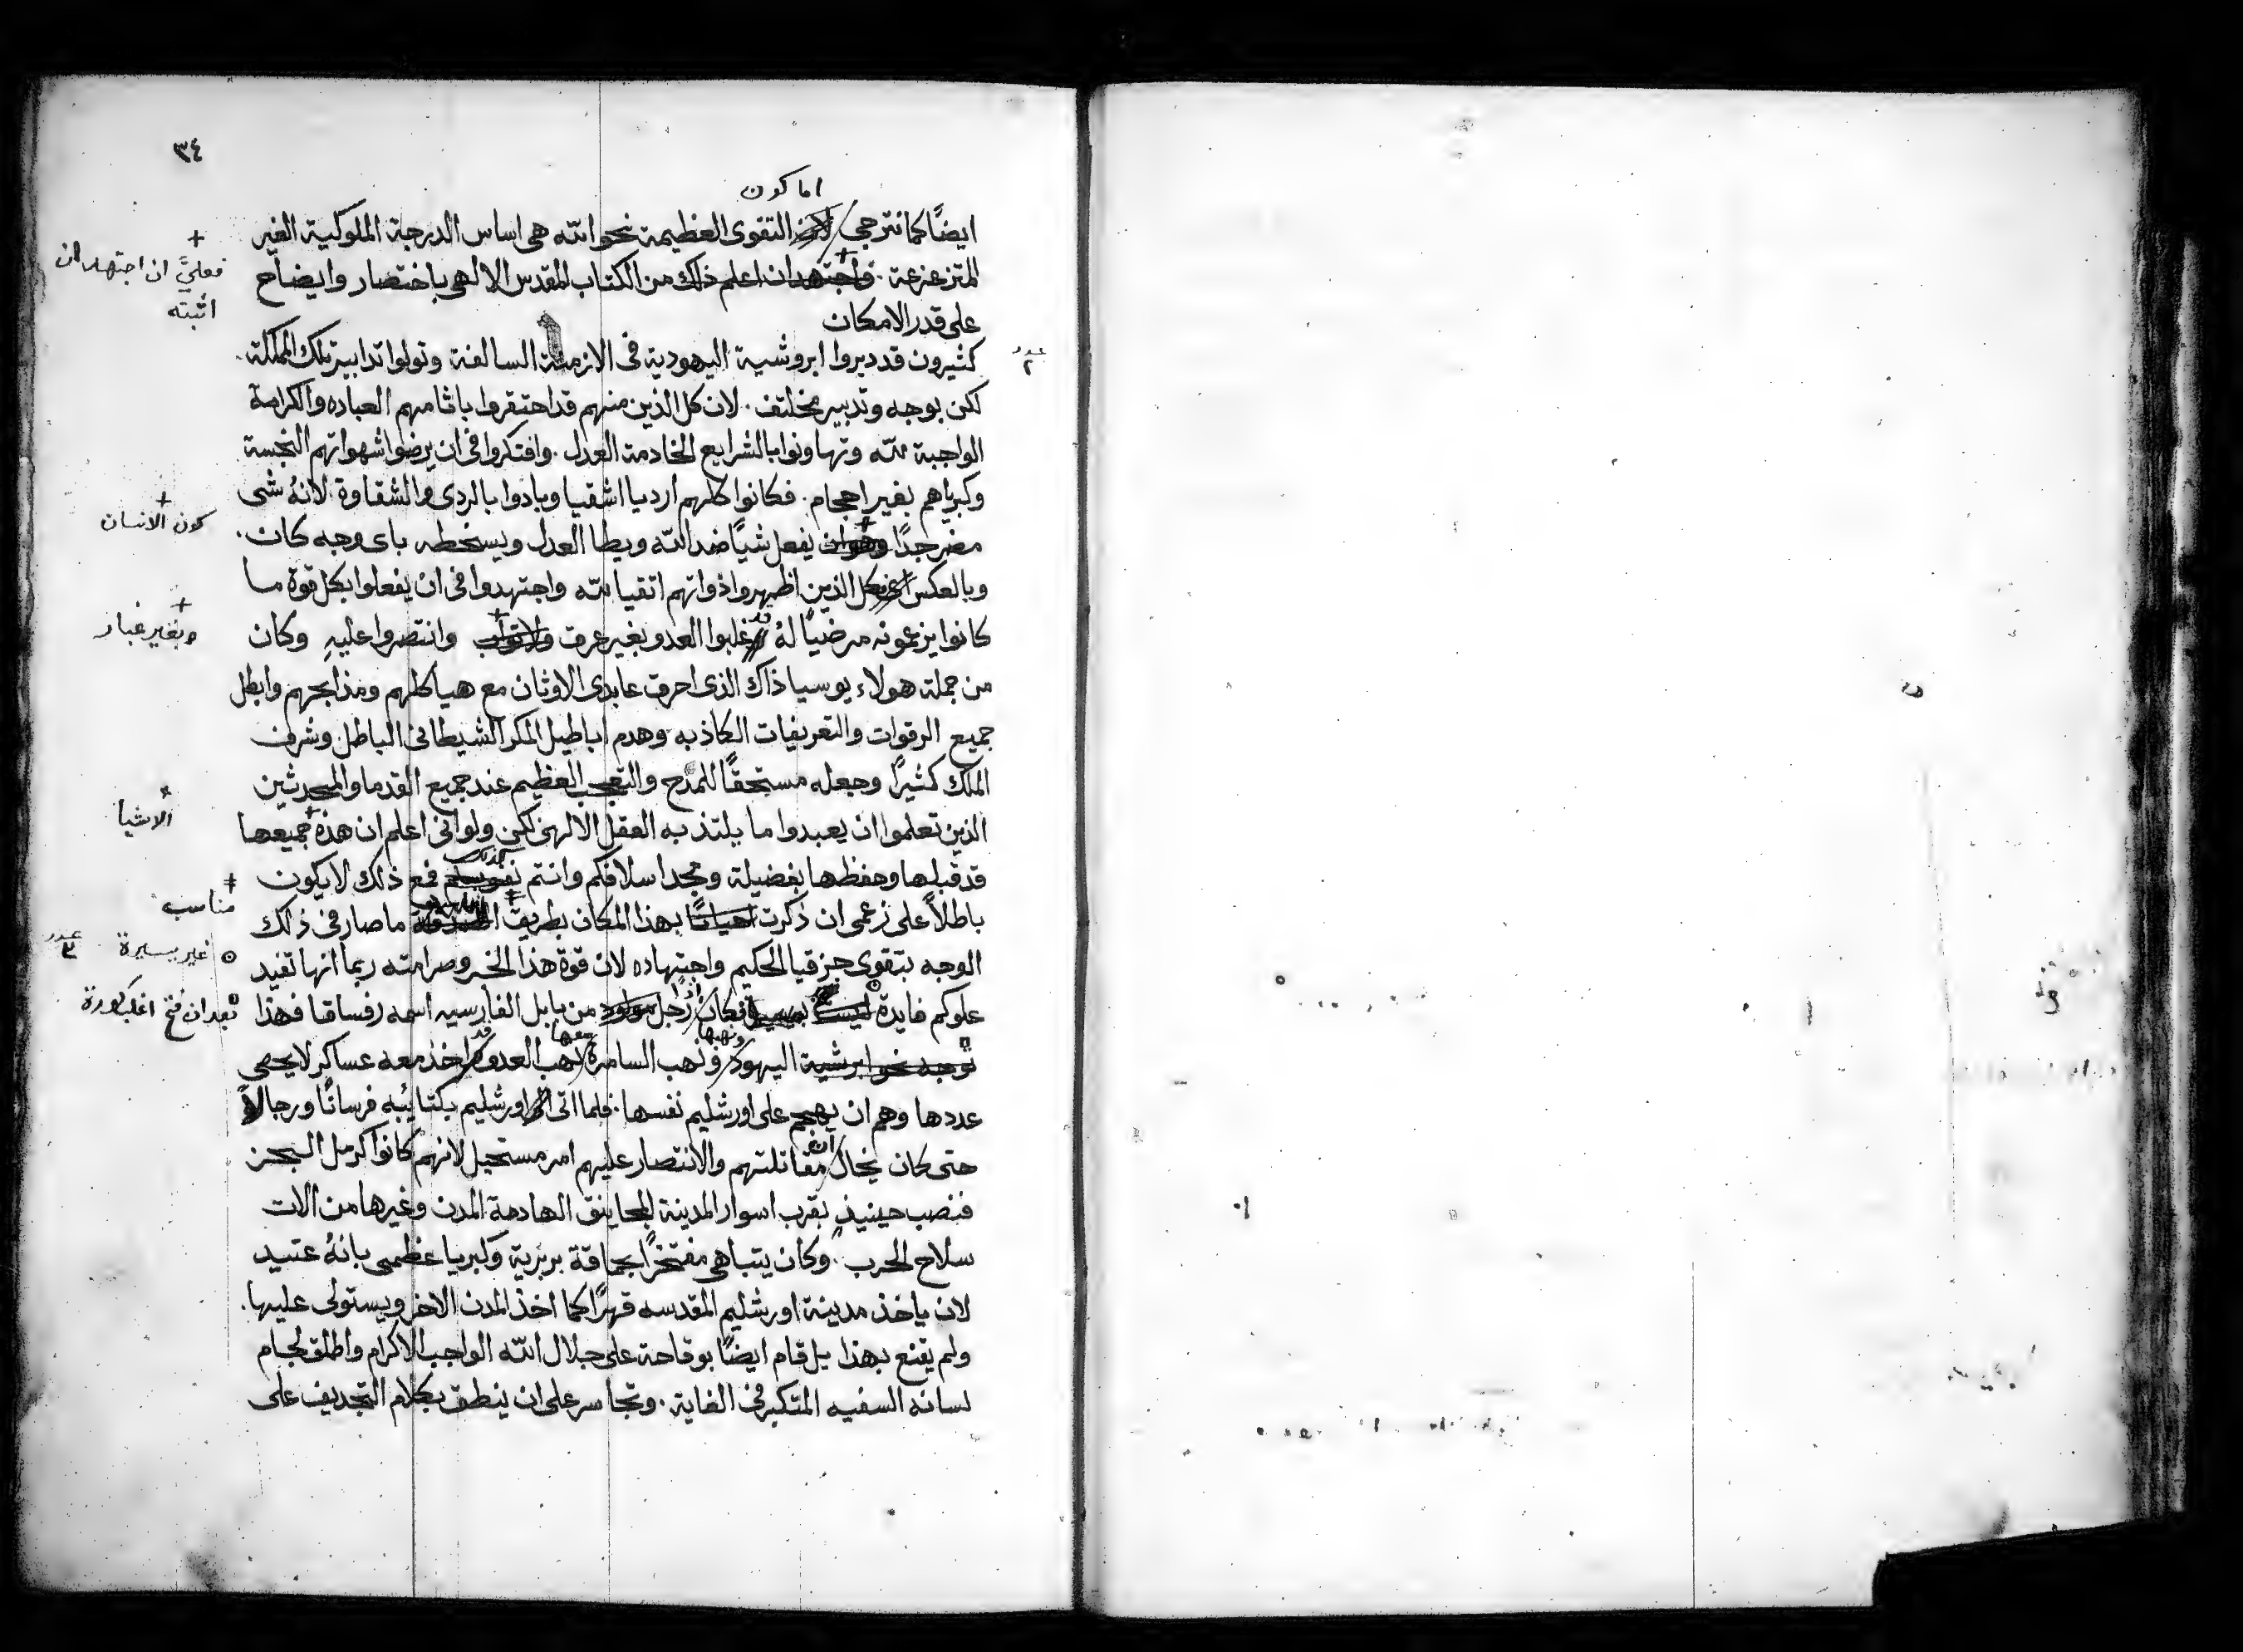 ٣٤
اما كون
ايضًا كما نترجى لان التقوى العظيمة نحو الله هى اساس الدرجة الملوكية الغير
المتزعزعة . واجتهد ان اعلم ذلك من الكتاب المقدس الالهى باختصار وايضاح
+
فعليَّ ان اجتهد ان
اثبته
على قدر الامكان
عدد
٢
كثيرون قد دبروا ابروشية اليهودية فى الازمنة السالفة وتولوا تدابير تلك المملكة .
لكن بوجه وتدبير مختلف . لان كل الذين منهم قد احتقروا باثامهم العباده والكرامة
الواجبة لله وتهاونوا بالشرايع الخادمة العدل . وافتكروا فى ان يرضوا شهواتهم النجسة
وكبرياهم بغير احجام . فكانوا كلهم ارديا اشقيا وبادوا بالردى والشقاوة لانهُ شى
+
كون الانسان
مضر جدًا وهو ان يفعل شيًا ضد الله ويطا العدل ويسخطه باى وجه كان .
وبالعكس كل الذين اظهروا ذواتهم اتقيا لله واجتهدوا فى ان يفعلوا بكل قوة ما
+
وبغير غبار
كانوا يزعمونه مرضيًا لهُ قد غلبوا العدو بغير عرق ولا تراب وانتصروا عليهِ وكان
من جملة هولاء يوسيا ذاك الذى احرق عابدى الاوثان مع هياكلهم ومذابحهم وابطل
جميع الرقوات والتعريفات الكاذبه وهدم اباطيل المكر الشيطانى الباطل وشرف
الملك كثيرًا وجعله مستحقًا للمدح والتعجب العظيم عند جميع القدما والمحدثين
الاشيا
الذين تعلموا ان يعبدوا ما يلتذ به العقل الالهى لكن ولو انى اعلم ان هذه جميعها
قد قبلها وحفظها بفضيلة ومجد اسلافكم وانتم فمع ذلك لا يكون
مناسب
باطلاً على زعمى ان ذكرت احيانًا بهذا المكان بطريق ما صار فى ذلك
عدد
٣
غير يسيرة
الوجه بتقوى حزقيا الحكيم واجتهاده لان قوة هذا الخبر وصرامته ربما انها تفيد
بعد ان فتح
علوكم فايدة فكان اذًا رجل مولود من بابل الفارسيه اسمه رفساقا فهذا
توجه نحو ابرشية اليهود ونهبها ونهب السامرة معها نهب العدو قد اخذ معه عساكر لا يحصى
عددها وهم ان يهجم على اورشليم نفسها . فلما اتى الى اورشليم بكتايبه فرسانًا ورجالاً
حتى كان يخال ان مقاتلتهم والانتصار عليهم امر مستحيل لانهم كانوا كرمل البحر
فنصب حينيذٍ بقرب اسوار المدينة المجانيق الهادمة المدن وغيرها من الات
سلاح الحرب . وكان يتباهى مفتخرًا بحماقة بربرية وكبريا عظمى بانهُ عتيد
لان ياخذ مدينة اورشليم المقدسه قهرًا كما اخذ المدن الاخر ويستولى عليها .
ولم يقنع بهذا بل قام ايضًا بوقاحة على جلال الله الواجب الاكرام واطلق لجام
لسانه السفيه المتكبر فى الغاية . وتجاسر على ان ينطق بكلام التجديف على